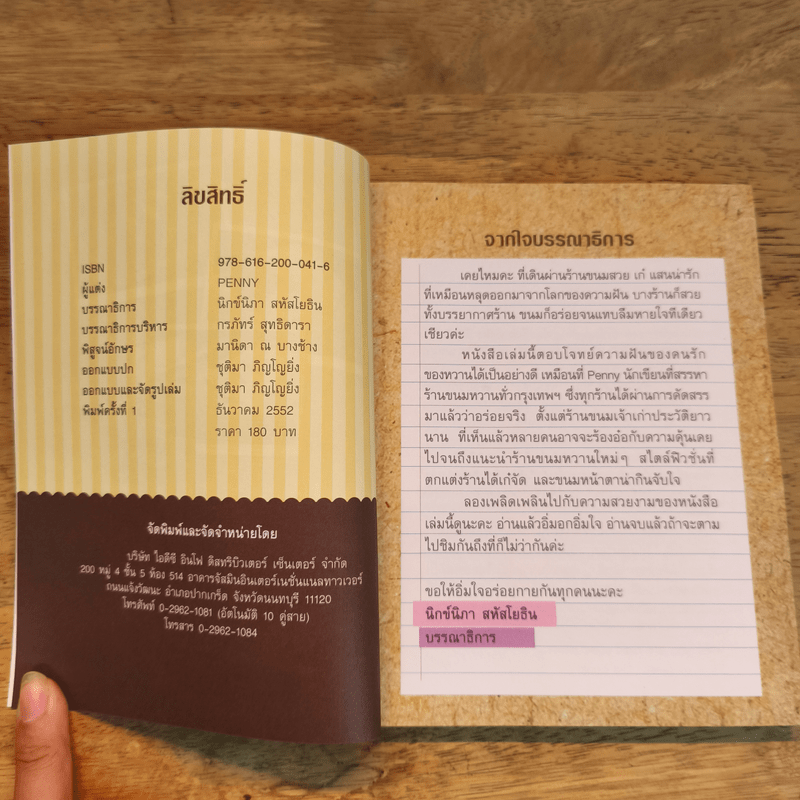 ลิขสิทธิ์
ISBN 978-616-200-041-6
ผู้แต่ง PENNY
บรรณาธิการ นิกข์นิภา สหัสโยธิน
บรรณาธิการบริหาร กรภัทร์ สุทธิดารา
พิสูจน์อักษร มานิดา ณ บางช้าง
ออกแบบปก ชุติมา ภิญโญยิ่ง
ออกแบบและจัดรูปเล่ม ชุติมา ภิญโญยิ่ง
พิมพ์ครั้งที่ 1 ธันวาคม 2552
ราคา 180 บาท
จัดพิมพ์และจัดจำหน่ายโดย
บริษัท ไอดีซี อินโฟ ดิสทริบิวเตอร์ เซ็นเตอร์ จำกัด
200 หมู่ 4 ชั้น 5 ห้อง 514 อาคารจัสมินอินเตอร์เนชั่นแนลทาวเวอร์
ถนนแจ้งวัฒนะ อำเภอปากเกร็ด จังหวัดนนทบุรี 11120
โทรศัพท์ 0-2962-1081 (อัตโนมัติ 10 คู่สาย)
โทรสาร 0-2962-1084
จากใจบรรณาธิการ
เคยไหมคะ ที่เดินผ่านร้านขนมสวย เก๋ แสนน่ารัก
ที่เหมือนหลุดออกมาจากโลกของความฝัน บางร้านก็สวย
ทั้งบรรยากาศร้าน ขนมก็อร่อยจนแทบลืมหายใจทีเดียว
เชียวค่ะ
หนังสือเล่มนี้ตอบโจทย์ความฝันของคนรัก
ของหวานได้เป็นอย่างดี เหมือนที่ Penny นักเขียนที่สรรหา
ร้านขนมหวานทั่วกรุงเทพฯ ซึ่งทุกร้านได้ผ่านการคัดสรร
มาแล้วว่าอร่อยจริง ตั้งแต่ร้านขนมเจ้าเก่าประวัติยาว
นาน ที่เห็นแล้วหลายคนอาจจะร้องอ๋อกับความคุ้นเคย
ไปจนถึงแนะนำร้านขนมหวานใหม่ๆ สไตล์ฟิวชั่นที่
ตกแต่งร้านได้เก๋จัด และขนมหน้าตาน่ากินจับใจ
ลองเพลิดเพลินไปกับความสวยงามของหนังสือ
เล่มนี้ดูนะคะ อ่านแล้วอิ่มอกอิ่มใจ อ่านจบแล้วถ้าจะตาม
ไปชิมกันถึงที่ก็ไม่ว่ากันค่ะ
ขอให้อิ่มใจอร่อยกายกันทุกคนนะคะ
นิกข์นิภา สหัสโยธิน
บรรณาธิการ